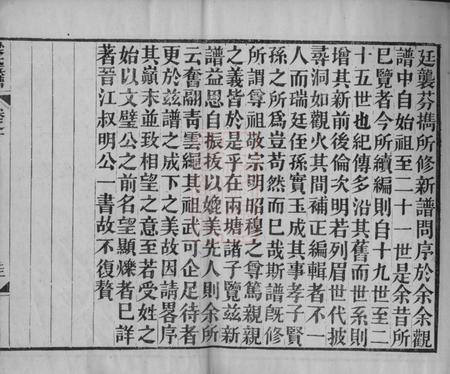 廷襲芬攜所修新譜問序於余余觀
譜中自始祖至二十一世是余昔所
已覽者今所續編則自十九世至二
十五世也紀傳多沿其舊而世系則
增其新前後倫次明若列眉世代披
尋洞如觀火其間補正編輯者不一
人而瑞廷侄孫實玉成其事孝子賢
孫之所爲豈苟然而已哉斯譜旣修
所謂尊祖敬宗明昭穆之尊篤親親
之義皆於是乎在兩塘諸子覽茲新
譜益思自振抜以媲美先人則余所
云奮翮靑雲繩其祖武可企足待者
更於茲譜之成下之美故因請畧序
其巔末並致相望之意至若受姓之
始以文璧公之前名望顯爍者已詳
著晉江叔明公一書故不復贅